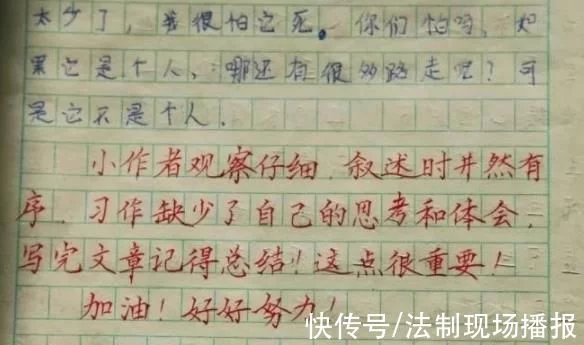 太少了，我很怕它死。你们怕吗，如
果它是个人，哪还有很多路走呢？可
是它不是个人.
小作者观察仔细，叙述时井然有
序，习作缺少了自己的思考和体会，
写完文章记得总结！这点很重要！
加油！好好努力！
快传号/法制现场播报